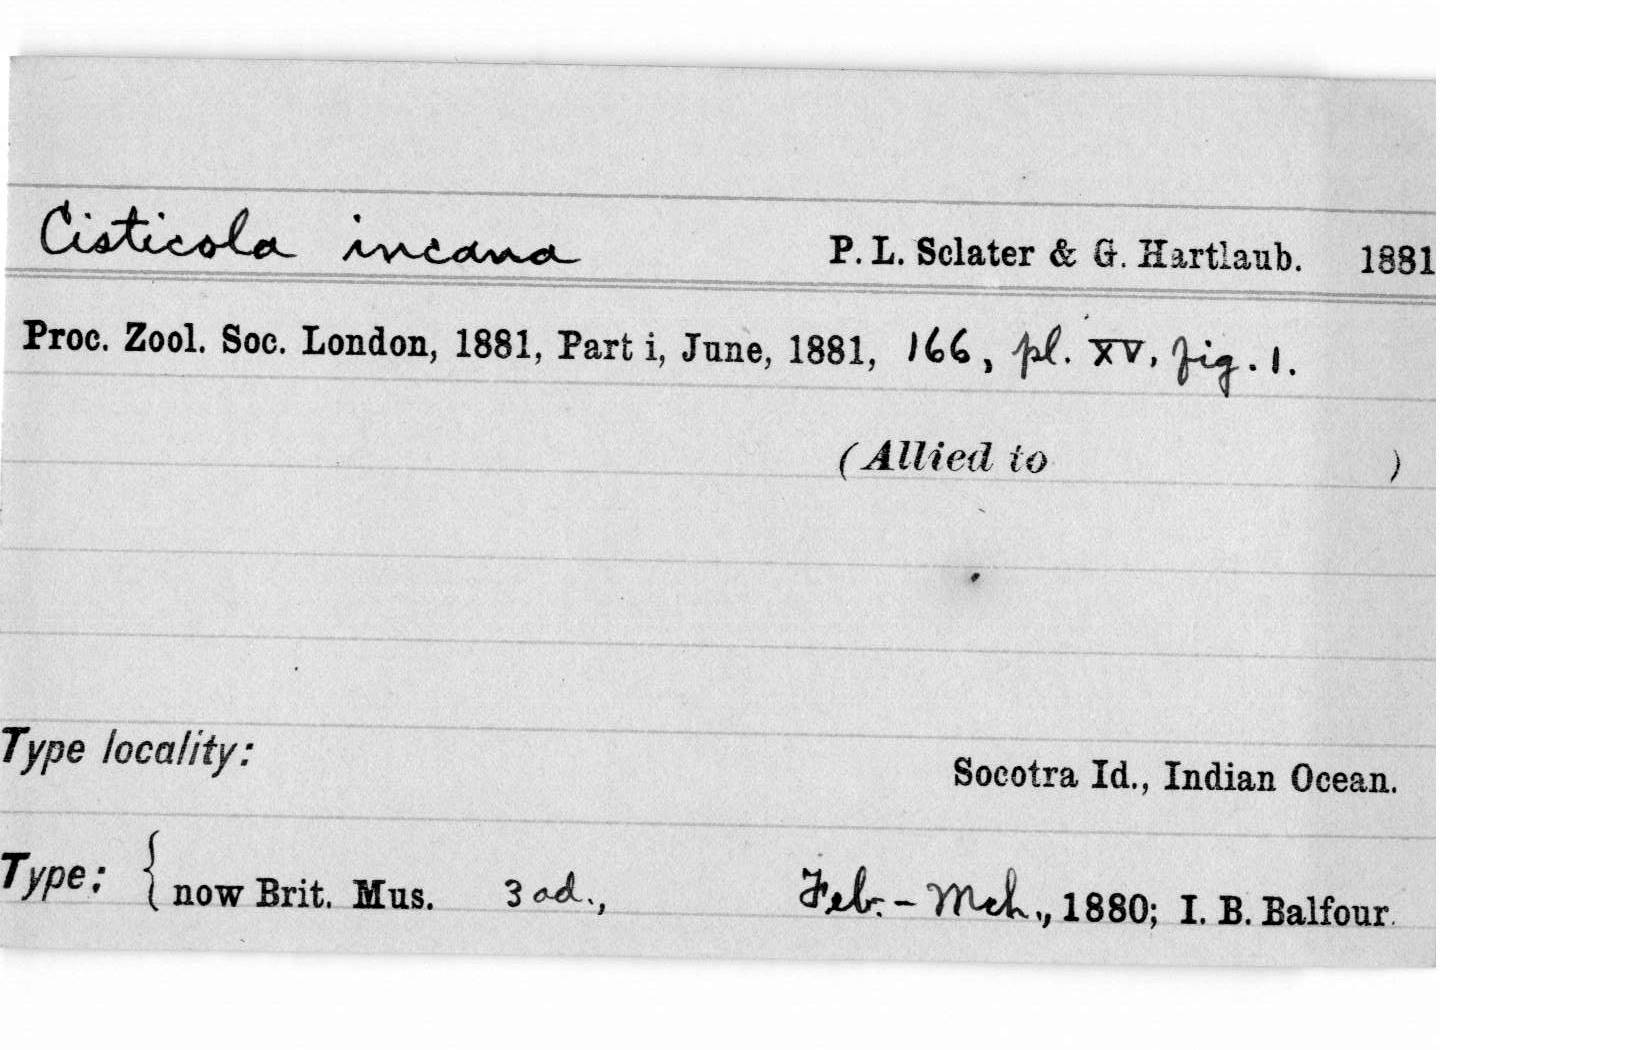 Cisticola incana P. L. Sclater & G. Hartlaub. 1881
Proc. Zool. Soc. London, 1881, Part i, June, 1881, 166, pl. XV, fig. 1.
(Allied to )
Type locality: Socotra Id., Indian Ocean.
Type: { now Brit. Mus. 3 ad., Feb. - Mch., 1880; I. B. Balfour.